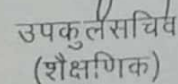 उपकुलसचिव
(शैक्षणिक)